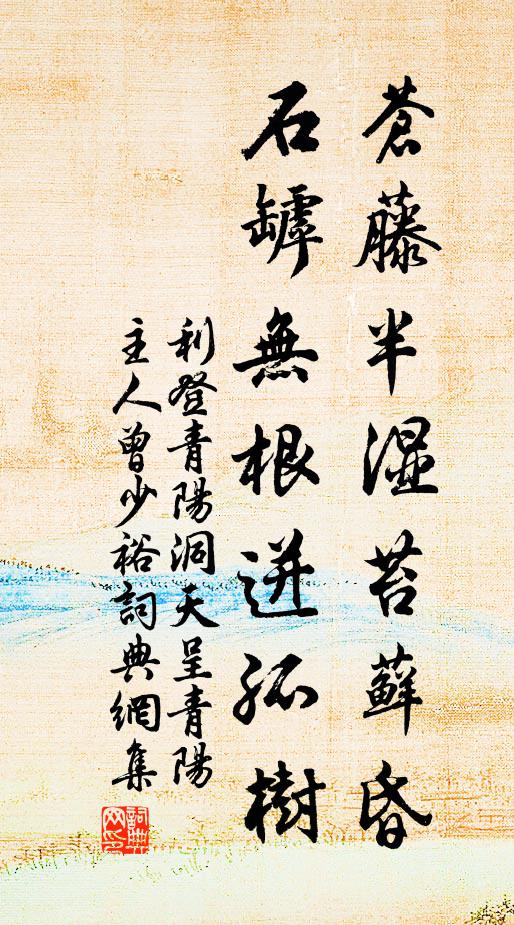 蒼藤半濕苔蘚昏
石罅無根迸孤樹
利登青陽洞天呈青陽
主人曾少裕詞典網集